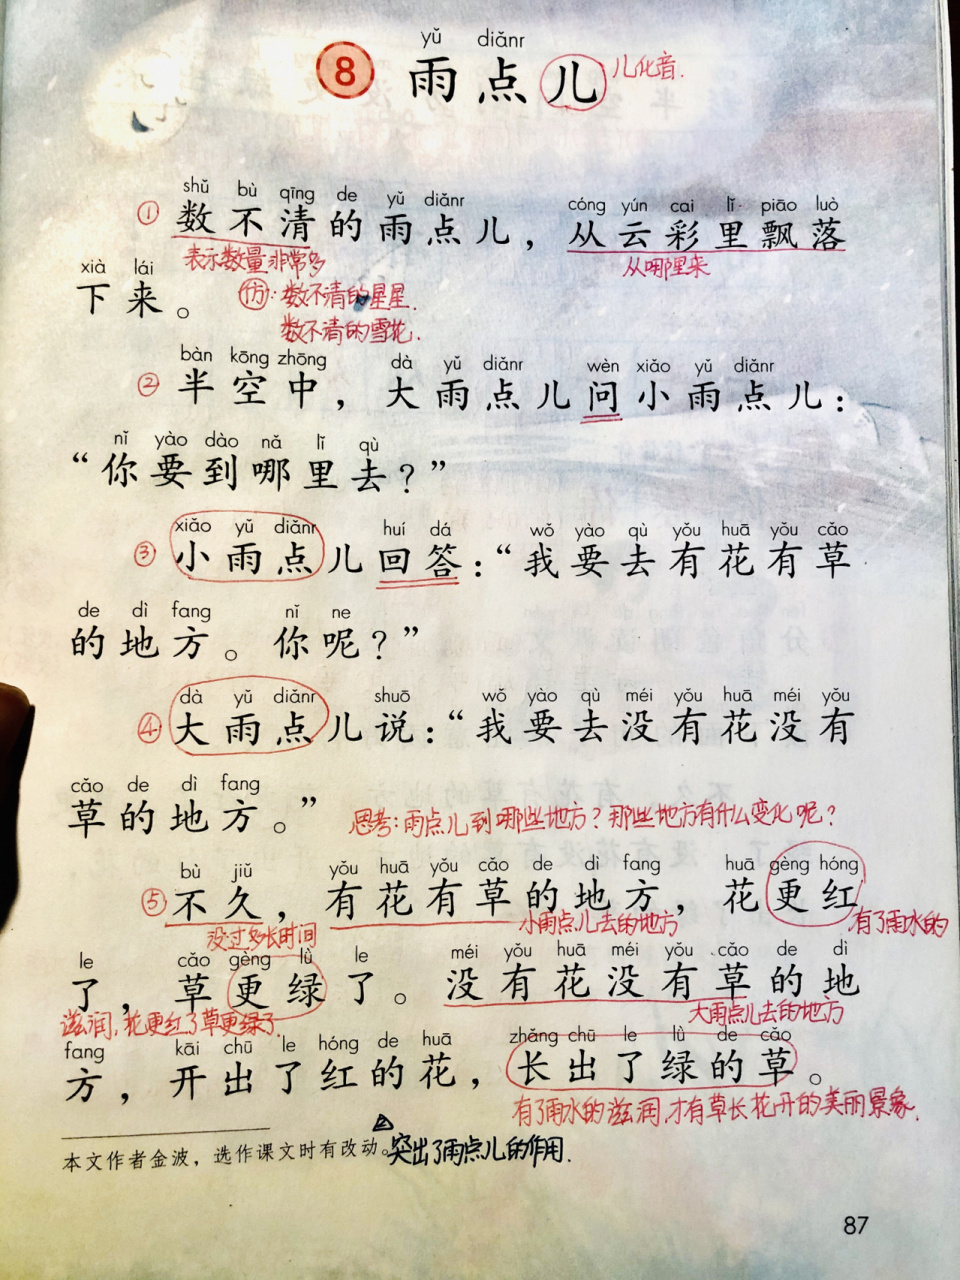 yǔ diǎnr
8 雨点儿 儿化音.
shǔ bù qīng de yǔ diǎnr cóng yún cai lǐ piāo luò
① 数不清的雨点儿，从云彩里飘落
表示数量非常多 从哪里来
xià lái
下来。 仿：数不清的星星.
数不清的雪花.
bàn kōng zhōng dà yǔ diǎnr wèn xiǎo yǔ diǎnr
② 半空中，大雨点儿问小雨点儿：
nǐ yào dào nǎ lǐ qù
“你要到哪里去？”
xiǎo yǔ diǎnr huí dá wǒ yào qù yǒu huā yǒu cǎo
③ 小雨点儿回答：“我要去有花有草
de dì fang nǐ ne
的地方。你呢？”
dà yǔ diǎnr shuō wǒ yào qù méi yǒu huā méi yǒu
④ 大雨点儿说：“我要去没有花没有
cǎo de dì fang
草的地方。” 思考：雨点儿到哪些地方？那些地方有什么变化呢？
bù jiǔ yǒu huā yǒu cǎo de dì fang huā gèng hóng
⑤ 不久，有花有草的地方，花更红
没过多长时间 小雨点儿去的地方 有了雨水的
le cǎo gèng lǜ le méi yǒu huā méi yǒu cǎo de dì
了，草更绿了。没有花没有草的地
滋润，花更红了草更绿了. 大雨点儿去的地方
fang kāi chū le hóng de huā zhǎng chū le lǜ de cǎo
方，开出了红的花，长出了绿的草。
有了雨水的滋润，才有草长花开的美丽景象.
本文作者金波，选作课文时有改动。 突出了雨点儿的作用.
87